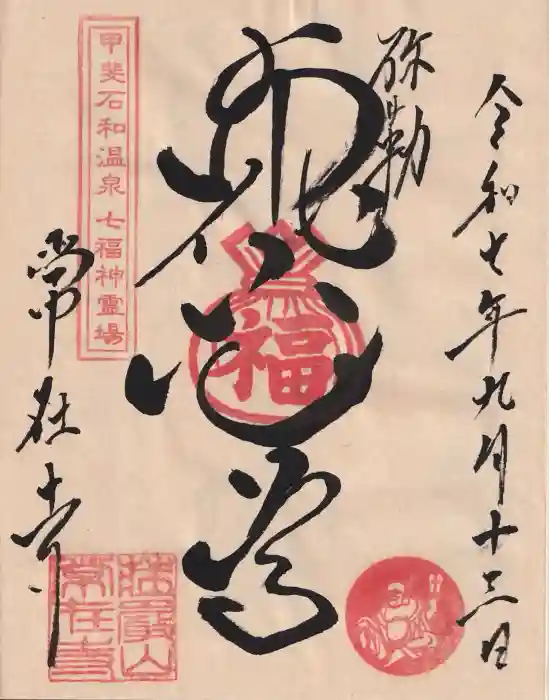 令和七年九月十三日
弥勒
布袋尊
福
甲斐石和温泉七福神霊場
常在寺
常在寺